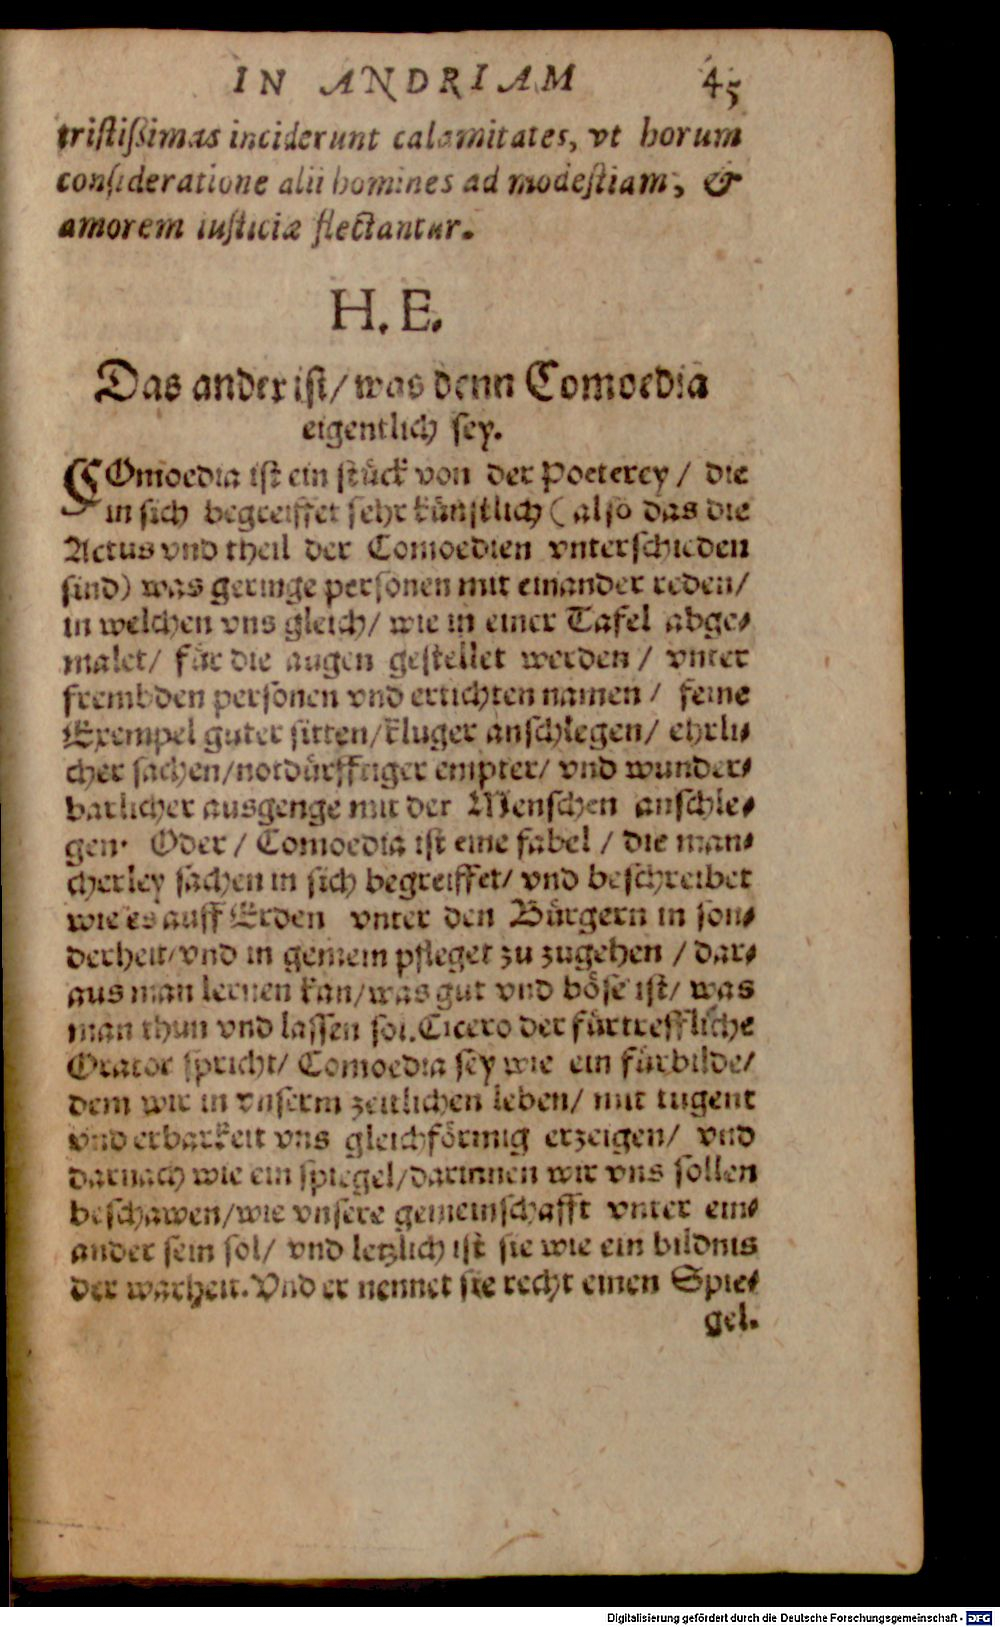 IN ANDRIAM 45
tristißimas inciderunt calamitates, vt horum
consideratione alii homines ad modestiam, &
amorem iusticiæ flectantur.
H. E.
Das ander ist/ was denn Comoedia
eigentlich sey.
COmoedia ist ein stück von der Poeterey / die
in sich begreiffet sehr künstlich ( also das die
Actus vnd theil der Comoedien vnterschieden
sind) was geringe personen mit einander reden/
in welchen vns gleich/ wie in einer Tafel abge-
malet/ für die augen gestellet werden / vnter
frembden personen vnd ertichten namen / feine
Exempel guter sitten/kluger anschlegen/ ehrli-
cher sachen/notdürfftiger empter/ vnd wunder-
barlicher ausgenge mit der Menschen anschle-
gen. Oder / Comoedia ist eine fabel / die man-
cherley sachen in sich begreiffet/ vnd beschreibet
wie es auff Erden vnter den Bürgern in son-
derheit/vnd in gemein pfleget zu zugehen / dar-
aus man lernen kan/was gut vnd böse ist/ was
man thun vnd lassen sol. Cicero der fürtreffliche
Orator spricht/ Comoedia sey wie ein fürbilde/
dem wir in vnserm zeitlichen leben/ mit tugent
vnd erbarkeit vns gleichförmig erzeigen/ vnd
darnach wie ein spiegel/darinnen wir vns sollen
beschawen/wie vnsere gemeinschafft vnter ein-
ander sein sol/ vnd letzlich ist sie wie ein bildnis
der warheit. Vnd er nennet sie recht einen Spie-
gel.
Digitalisierung gefördert durch die Deutsche Forschungsgemeinschaft - DFG